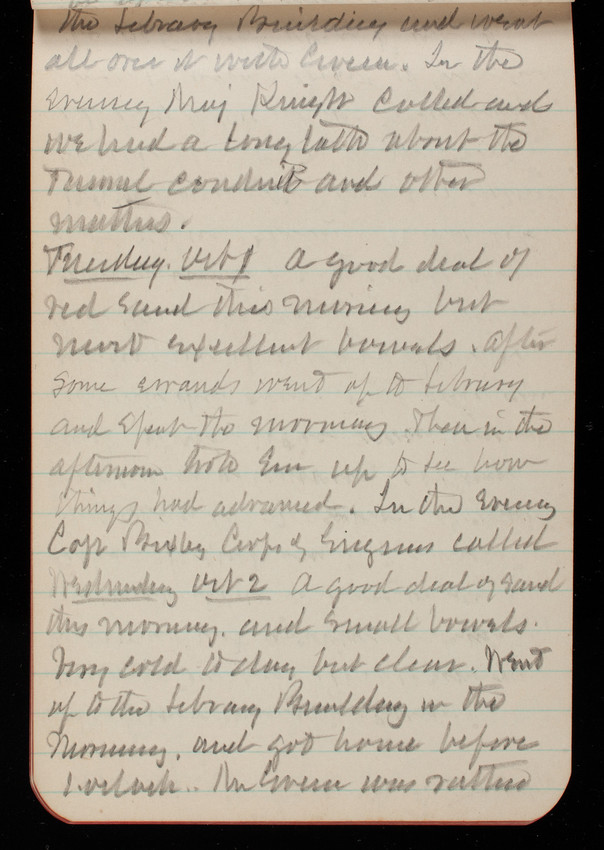 the Library Building and went
all over it with Green. In the
evening Maj Knight called and
we had a long talk about the
Tunnel conduit and other
matters.
Tuesday. Oct 1 A good deal of
red sand this morning but
most excellent bowels. After
some errands went up to Library
and spent the morning. Then in the
afternoon took Em up to see how
things had advanced. In the Evening
Capt Bixby Corps of Engineers called
Wednesday Oct 2 A good deal of sand
this morning. and small bowels.
Very cold to day but clear. Went
up to the Library Building in the
Morning. and got home before
1 oclock. Green was rather